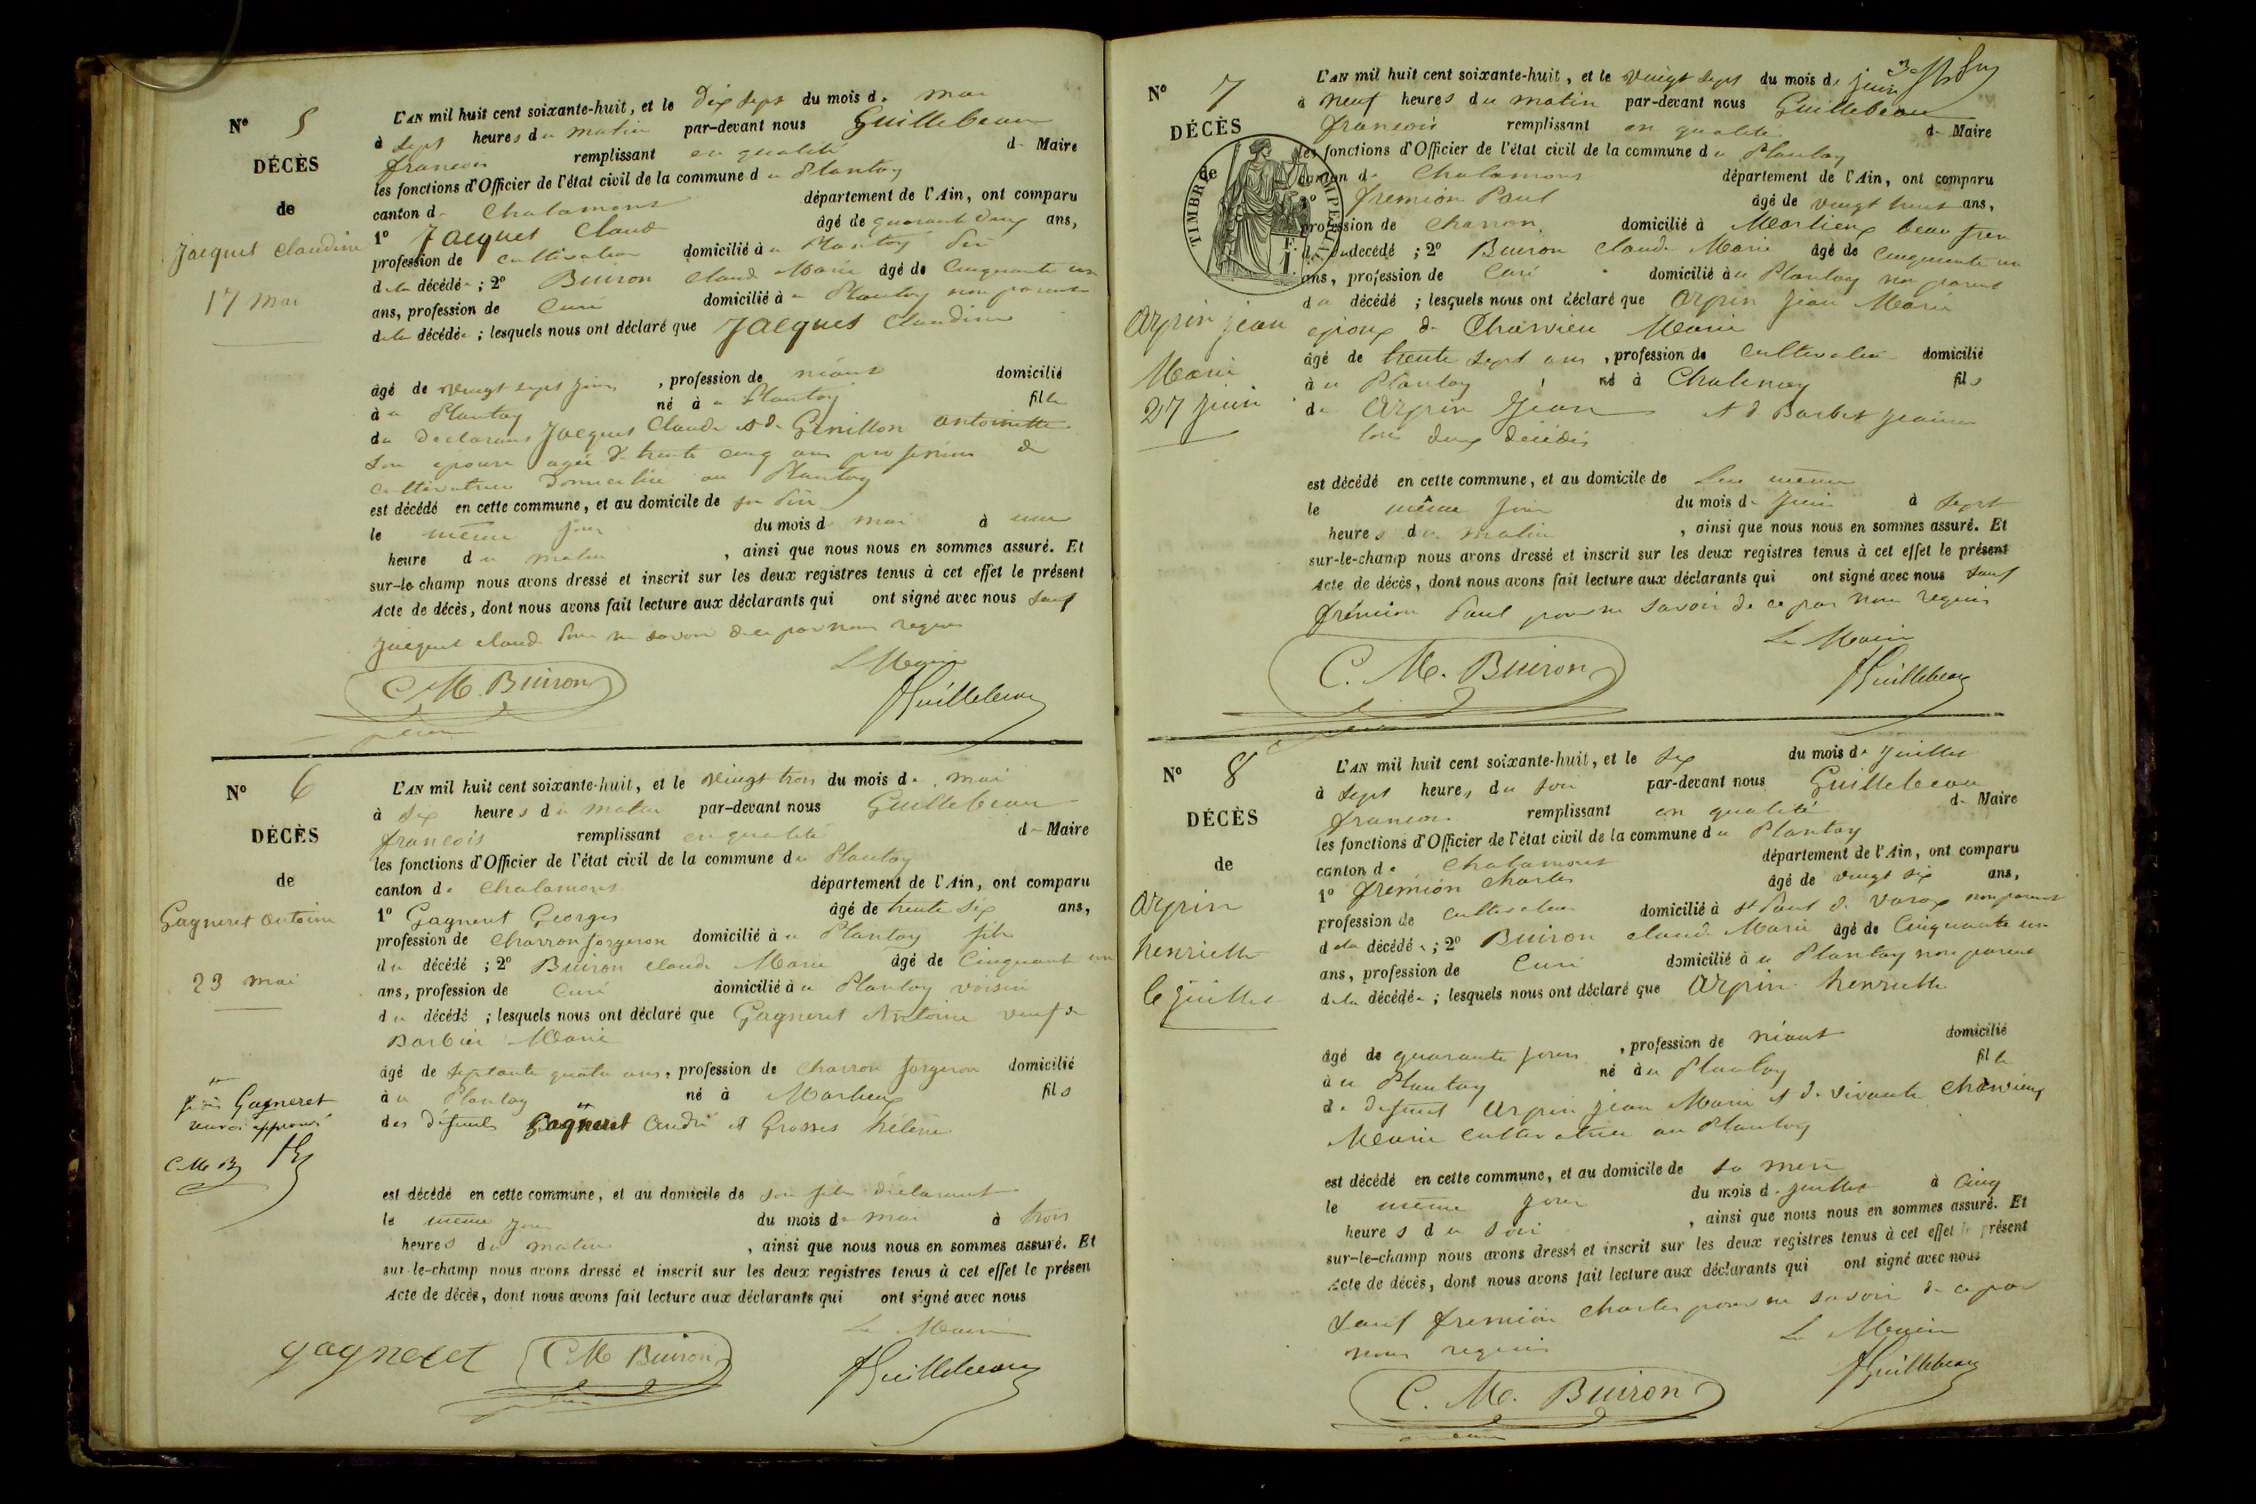 N° 5
DÉCÈS
de
Jacquet Claudine
17 mai
L'AN mil huit cent soixante-huit, et le dix sept du mois de mai
à sept heures du matin par-devant nous Guillebeau
francois remplissant en qualité de Maire
les fonctions d'Officier de l'état civil de la commune du Plantay
canton de Chalamont département de l'Ain, ont comparu
1° Jacquet Claude âgé de quarant deux ans,
profession de cultivateur domicilié à u Plantay père
de la décédée ; 2° Buiron Claude Marie âgé de Cinquante un
ans, profession de Curé domicilié à u Plantay non parent
de la décédée ; lesquels nous ont déclaré que Jacquet Claudine
âgé de vingt sept jours , profession de néant domicilié
à u Plantay né à u Plantay fille
du declarant Jacquet Claude et de Genillon antoinette
son épouse agée de trente cinq ans profession de
cultivatrice domiciliée au Plantay
est décédé en cette commune, et au domicile de son père
le même jour du mois de mai à une
heure du matin , ainsi que nous nous en sommes assuré. Et
sur-le-champ nous avons dressé et inscrit sur les deux registres tenus à cet effet le présent
Acte de décès, dont nous avons fait lecture aux déclarants qui ont signé avec nous sauf
Jacquet claude pour ne savoir de ce par nous requis
Le Maire
C. M. Buiron
Guillebeau
N° 6
DÉCÈS
de
Gagneret antoine
23 mai
Gagneret
renvoi approuvé
C. M. B
L'AN mil huit cent soixante-huit, et le vingt trois du mois de mai
à six heures du matin par-devant nous Guillebeau
francois remplissant en qualité de Maire
les fonctions d'Officier de l'état civil de la commune du Plantay
canton de Chalamont département de l'Ain, ont comparu
1° Gagneret Georges âgé de trente six ans,
profession de charron forgeron domicilié à u Plantay fils
du décédé ; 2° Buiron claude Marie âgé de Cinquante un
ans, profession de Curé domicilié à u Plantay voisin
du décédé ; lesquels nous ont déclaré que Gagneret Antoine veuf de
Barbier Marie
âgé de septante quatre ans, profession de charron forgeron domicilié
à u Plantay né à Marlieux fils
des défunts Gagneret andré et Grosses hélène
est décédé en cette commune, et au domicile de son fils déclarant
le même jour du mois de mai à trois
heures du matin , ainsi que nous nous en sommes assuré. Et
sur-le-champ nous avons dressé et inscrit sur les deux registres tenus à cet effet le présen
Acte de décès, dont nous avons fait lecture aux déclarants qui ont signé avec nous
Le Maire
gagneret C M Buiron Guillebeau
N° 7
DÉCÈS
de
TIMBRE IMPERIAL
1 F.
Arpin jean
Marie
27 juin
L'AN mil huit cent soixante-huit, et le vingt sept du mois de juin
à neuf heures du matin par-devant nous Guillebeau
francois remplissant en qualité de Maire
les fonctions d'Officier de l'état civil de la commune du Plantay
canton de Chalamont département de l'Ain, ont comparu
1° fremion Paul âgé de vingt huit ans,
profession de charron domicilié à Marlieux beau frère
du décédé ; 2° Buiron Claude Marie âgé de cinquante un
ans, profession de Curé domicilié à u Plantay non parent
du décédé ; lesquels nous ont déclaré que Arpin jean Marie
epoux de Charvieu Marie
âgé de trente sept ans , profession de cultivateur domicilié
à u Plantay , né à Chatenay fils
de Arpin Jean et de Barbet jeanne
tous deux décédés
est décédé en cette commune, et au domicile de lui même
le même jour du mois de juin à sept
heures du matin , ainsi que nous nous en sommes assuré. Et
sur-le-champ nous avons dressé et inscrit sur les deux registres tenus à cet effet le présent
Acte de décès, dont nous avons fait lecture aux déclarants qui ont signé avec nous sauf
frémion Paul pour ne savoir de ce par nous requis
Le Maire
C. M. Buiron
Guillebeau
N° 8
DÉCÈS
de
Arpin
henriette
6 juillet
L'AN mil huit cent soixante-huit, et le six du mois de juillet
à sept heures du soir par-devant nous Guillebeau
francois remplissant en qualité de Maire
les fonctions d'Officier de l'état civil de la commune du Plantay
canton de Chalamont département de l'Ain, ont comparu
1° fremion charles âgé de vingt six ans,
profession de cultivateur domicilié à St Paul de Varax non parent
de la décédée ; 2° Buiron claude Marie âgé de Cinquante un
ans, profession de Curé domicilié à u Plantay non parent
de la décédée ; lesquels nous ont déclaré que Arpin henriette
âgé de quarante jours , profession de néant domicilié
à u Plantay né à u Plantay fille
de defunt Arpin jean Marie et de vivante Charvieux
Marie cultivatrice au Plantay
est décédé en cette commune, et au domicile de sa mère
le même jour du mois de juillet à Cinq
heures du soir , ainsi que nous nous en sommes assuré. Et
sur-le-champ nous avons dressé et inscrit sur les deux registres tenus à cet effet le présent
Acte de décès, dont nous avons fait lecture aux déclarants qui ont signé avec nous
sauf fremion charles pour ne savoir de ce par
nous requis
Le Maire
C. M. Buiron
Guillebeau